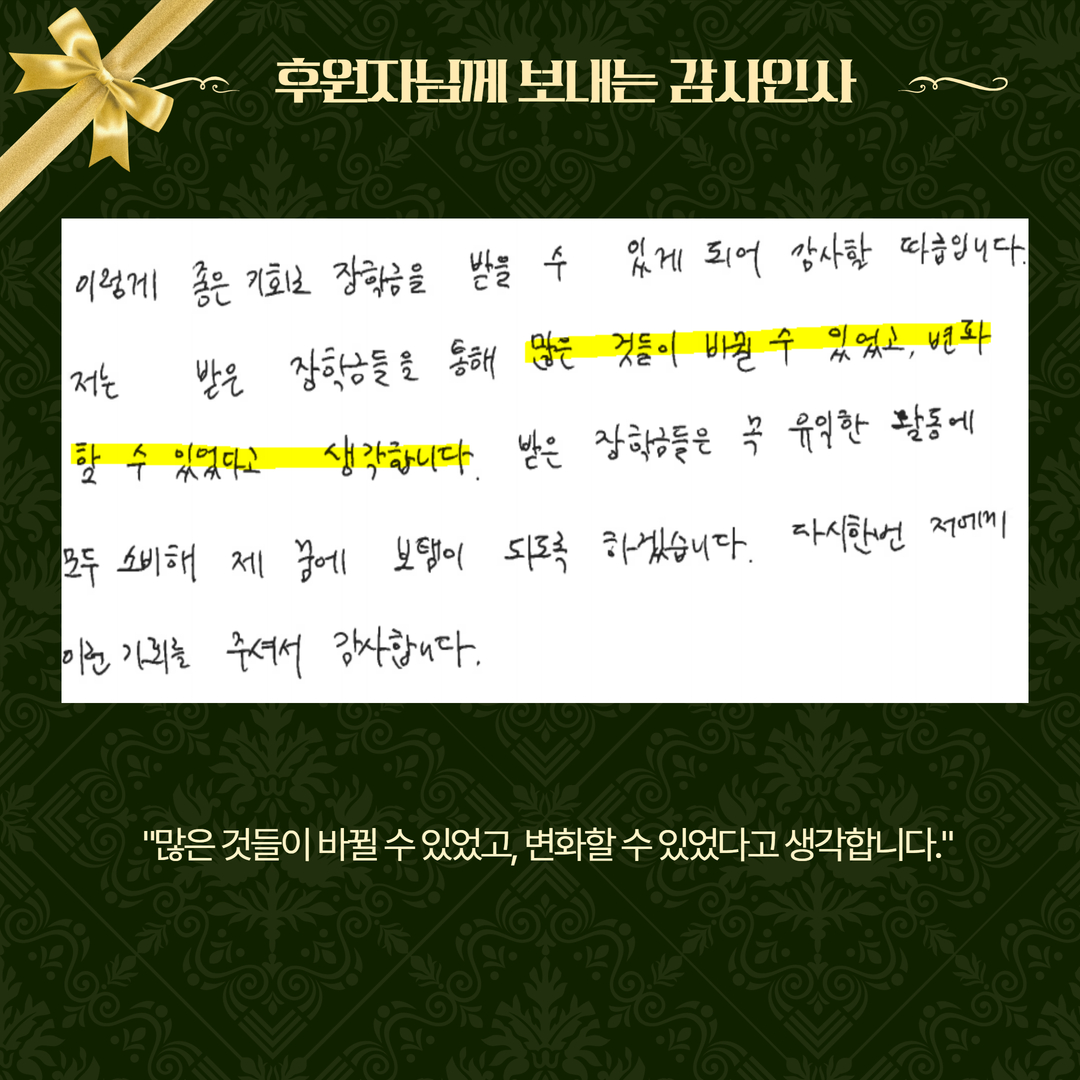 후원자님께 보내는 감사인사
이렇게 좋은 기회로 장학금을 받을 수 있게 되어 감사할 따름입니다.
저는 받은 장학금들을 통해 많은 것들이 바뀔 수 있었고, 변화
할 수 있었다고 생각합니다. 받은 장학금들은 꼭 유익한 활동에
모두 소비해 제 꿈에 보탬이 되도록 하겠습니다. 다시한번 저에게
이런 기회를 주셔서 감사합니다.
"많은 것들이 바뀔 수 있었고, 변화할 수 있었다고 생각합니다."